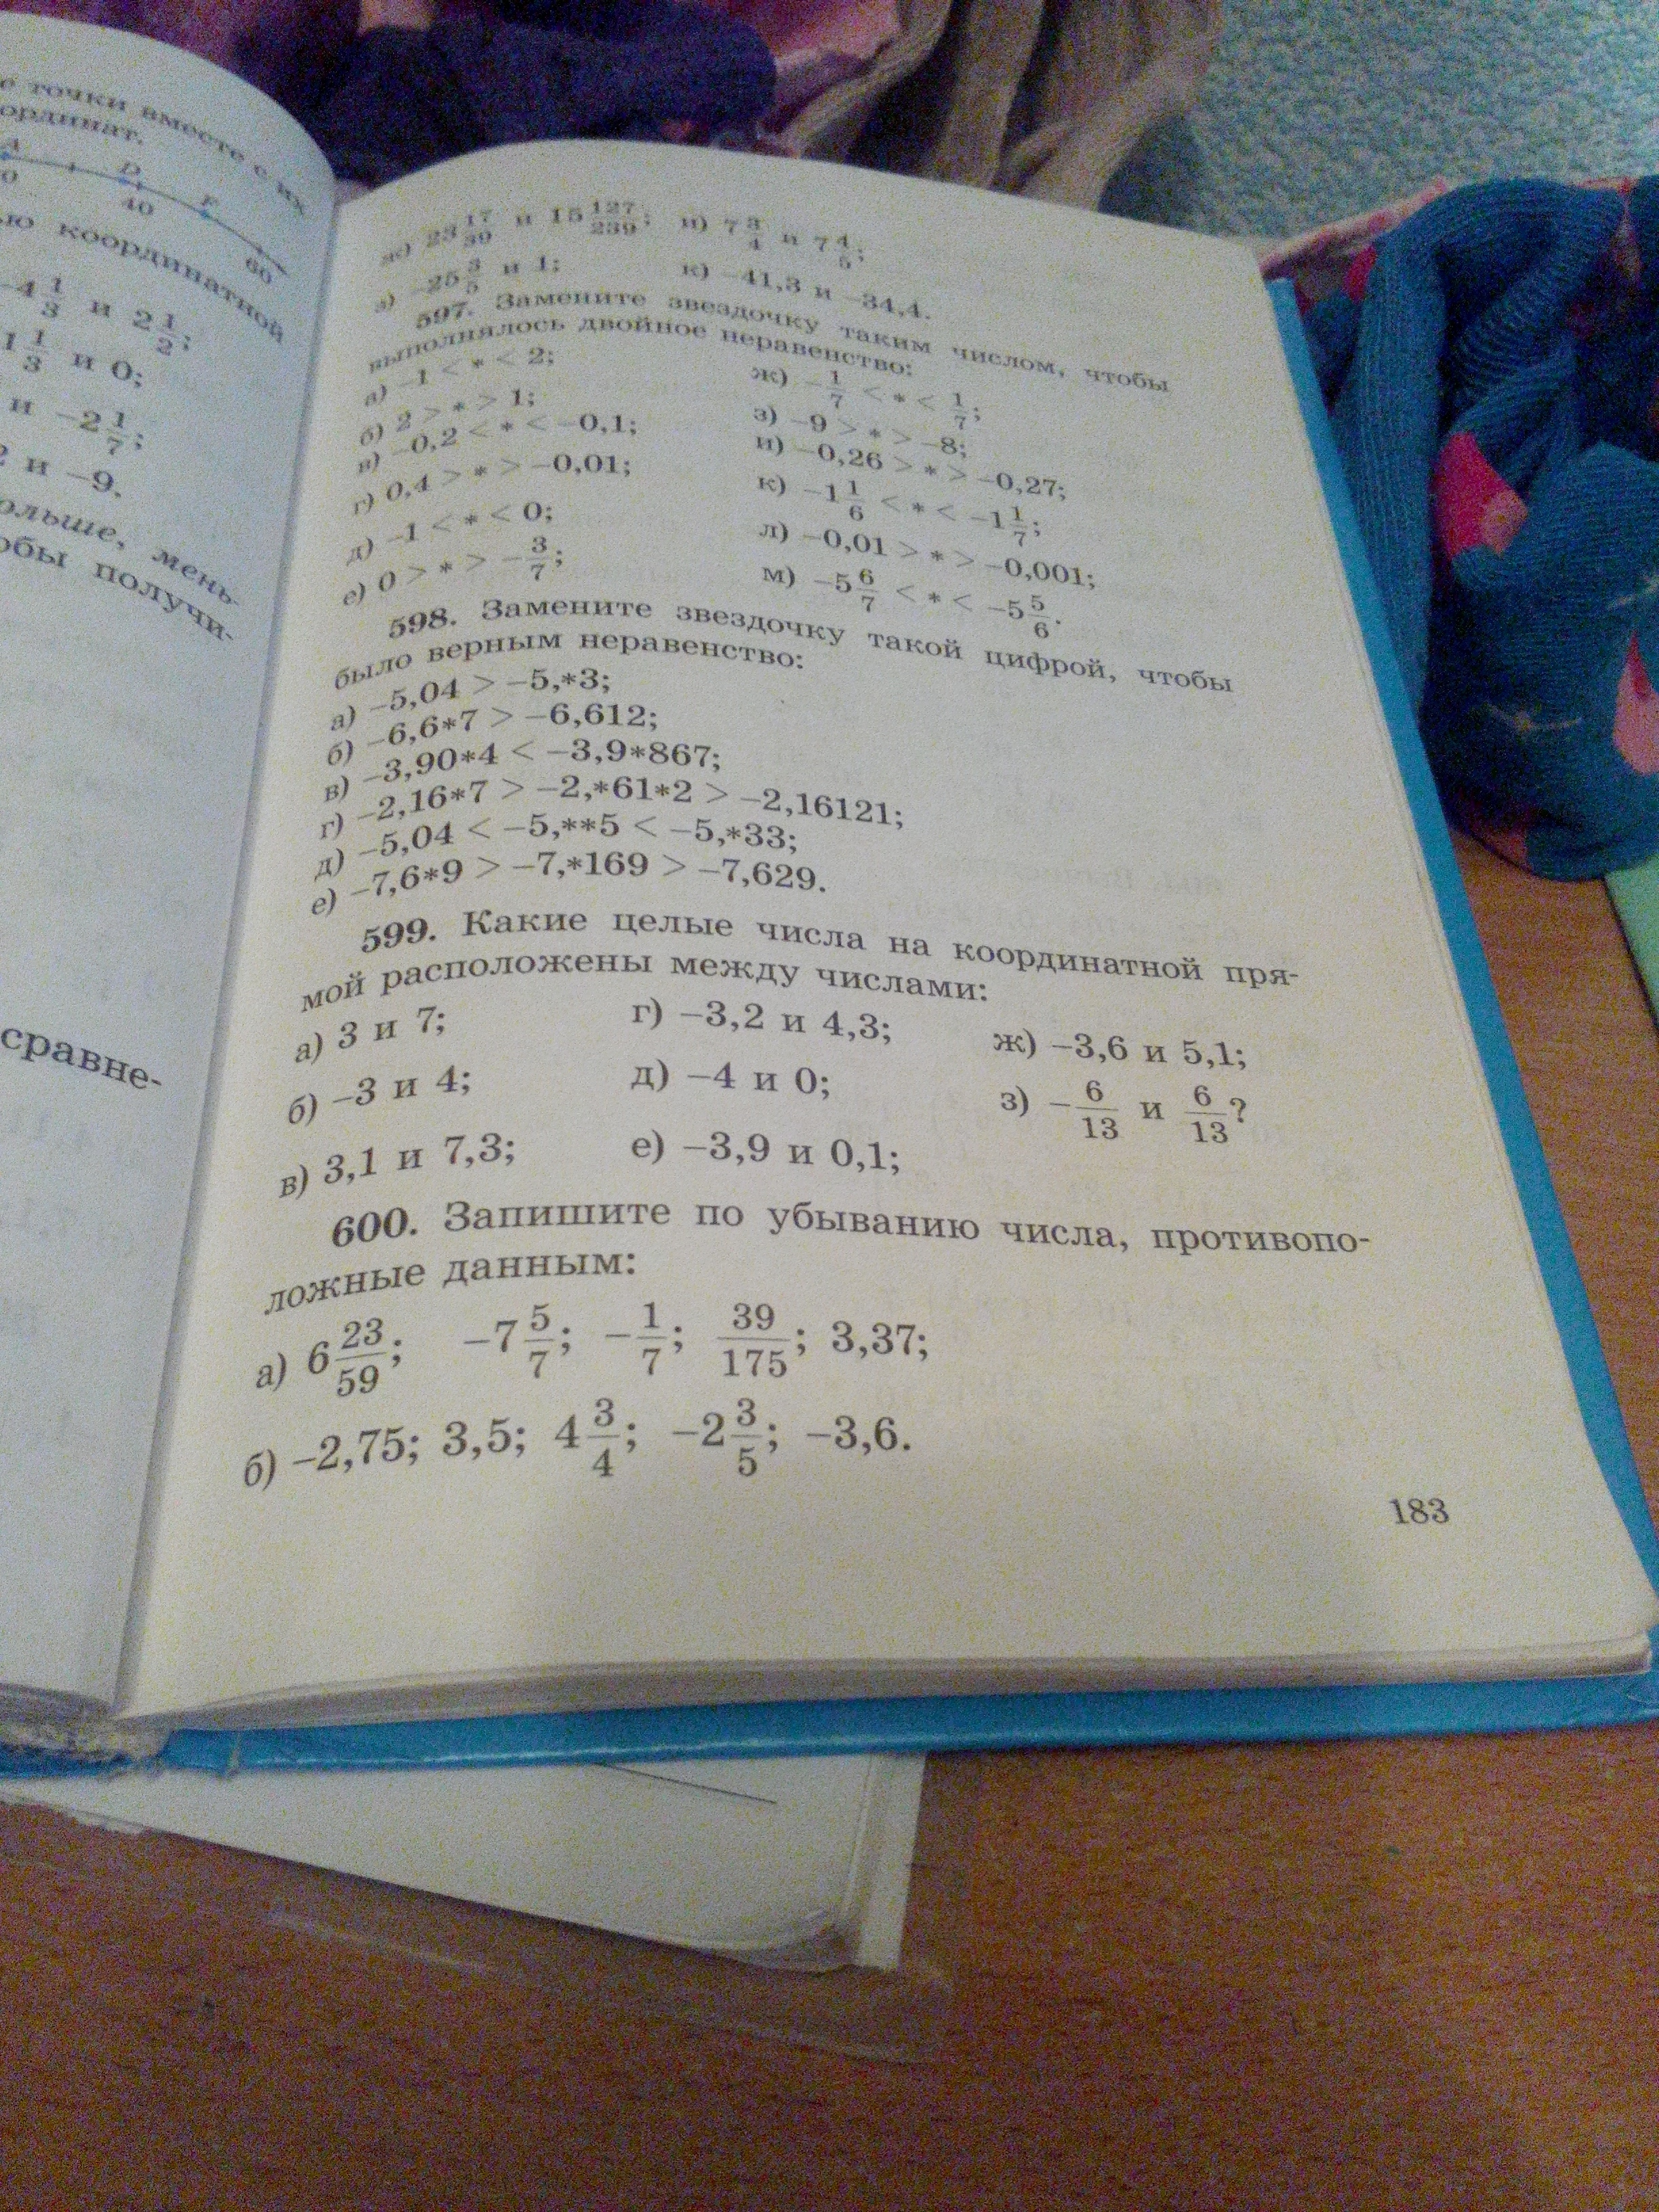 е точки вместе с их
ординат.
A D F
0 40 60
ю координатной
-4 1/3 и 2 1/2;
1 1/3 и 0;
и -2 1/7;
2 и -9.
ольше, мень-
обы получи-
сравне-
ж) 23 17/39 и 15 127/239; и) 7 3/4 и 7 4/5;
з) -25 3/5 и 1; к) -41,3 и -34,4.
597. Замените звездочку таким числом, чтобы
выполнялось двойное неравенство:
а) -1 < * < 2; ж) -1/7 < * < 1/7;
б) 2 > * > 1; з) -9 > * > -8;
в) -0,2 < * < -0,1; и) -0,26 > * > -0,27;
г) 0,4 > * > -0,01; к) -1 1/6 < * < -1 1/7;
д) -1 < * < 0; л) -0,01 > * > -0,001;
е) 0 > * > -3/7; м) -5 6/7 < * < -5 5/6.
598. Замените звездочку такой цифрой, чтобы
было верным неравенство:
а) -5,04 > -5,*3;
б) -6,6*7 > -6,612;
в) -3,90*4 < -3,9*867;
г) -2,16*7 > -2,*61*2 > -2,16121;
д) -5,04 < -5,**5 < -5,*33;
е) -7,6*9 > -7,*169 > -7,629.
599. Какие целые числа на координатной пря-
мой расположены между числами:
а) 3 и 7; г) -3,2 и 4,3; ж) -3,6 и 5,1;
б) -3 и 4; д) -4 и 0; з) -6/13 и 6/13?
в) 3,1 и 7,3; е) -3,9 и 0,1;
600. Запишите по убыванию числа, противопо-
ложные данным:
а) 6 23/59; -7 5/7; -1/7; 39/175; 3,37;
б) -2,75; 3,5; 4 3/4; -2 3/5; -3,6.
183